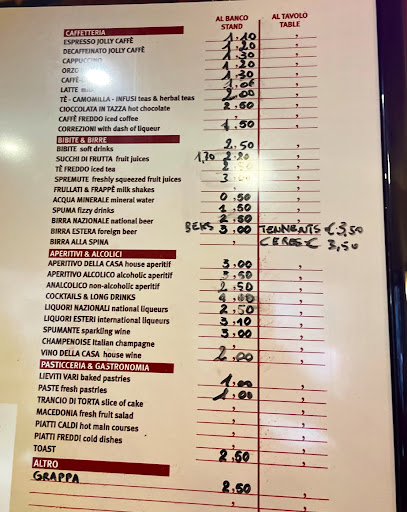 AL BANCO STAND AL TAVOLO TABLE
CAFFETTERIA
ESPRESSO JOLLY CAFFÈ 1,10
DECAFFEINATO JOLLY CAFFÈ 1,20
CAPPUCCINO 1,30
ORZO 1,20
CAFFÈ 1,30
LATTE
TÈ - CAMOMILLA - INFUSI teas & herbal teas 2,00
CIOCCOLATA IN TAZZA hot chocolate 2,50
CAFFÈ FREDDO iced coffee
CORREZIONI with dash of liqueur 1,50
BIBITE & BIRRE
BIBITE soft drinks 2,50
SUCCHI DI FRUTTA fruit juices 2,20
TÈ FREDDO iced tea 2,50
SPREMUTE freshly squeezed fruit juices
FRULLATI & FRAPPÈ milk shakes
ACQUA MINERALE mineral water 0,50
SPUMA fizzy drinks 1,50
BIRRA NAZIONALE national beer 2,50
BIRRA ESTERA foreign beer BEKS 3,00 TENNENTS € 3,50
BIRRA ALLA SPINA CERES € 3,50
APERITIVI & ALCOLICI
APERITIVO DELLA CASA house aperitif 3,00
APERITIVO ALCOLICO alcoholic aperitif 3,50
ANALCOLICO non-alcoholic aperitif 2,50
COCKTAILS & LONG DRINKS 4,00
LIQUORI NAZIONALI national liqueurs 2,50
LIQUORI ESTERI international liqueurs 3,10
SPUMANTE sparkling wine 3,00
CHAMPENOISE Italian champagne
VINO DELLA CASA house wine 2,00
PASTICCERIA & GASTRONOMIA
LIEVITI VARI baked pastries 1,00
PASTE fresh pastries 1,00
TRANCIO DI TORTA slice of cake
MACEDONIA fresh fruit salad
PIATTI CALDI hot main courses
PIATTI FREDDI cold dishes
TOAST 2,50
ALTRO
GRAPPA 2,50